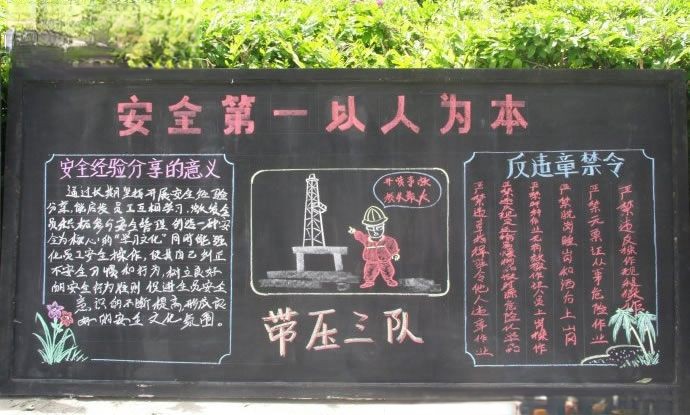 安全第一以人为本
安全经验分享的意义
通过长期坚持开展安全经验
分享,能启发员工互相学习,激发全
员积极参与安全管理,创造一种
安全为核心的"学习文化"同时能强
化员工安全操作,促其自己纠正
不安全习惯和行为,树立良好
的安全行为准则,促进全员安全
意识的不断提高,形成良
好的安全文化氛围。
带压三队
反违章禁令
严禁违反操作规程操作
严禁无票证从事危险作业
严禁脱岗睡岗和酒后上岗
严禁特种作业无有效操作证人员上岗操作
严禁违反规定运输民爆物品放射源危险化学品
严禁违章指挥强令他人违章作业